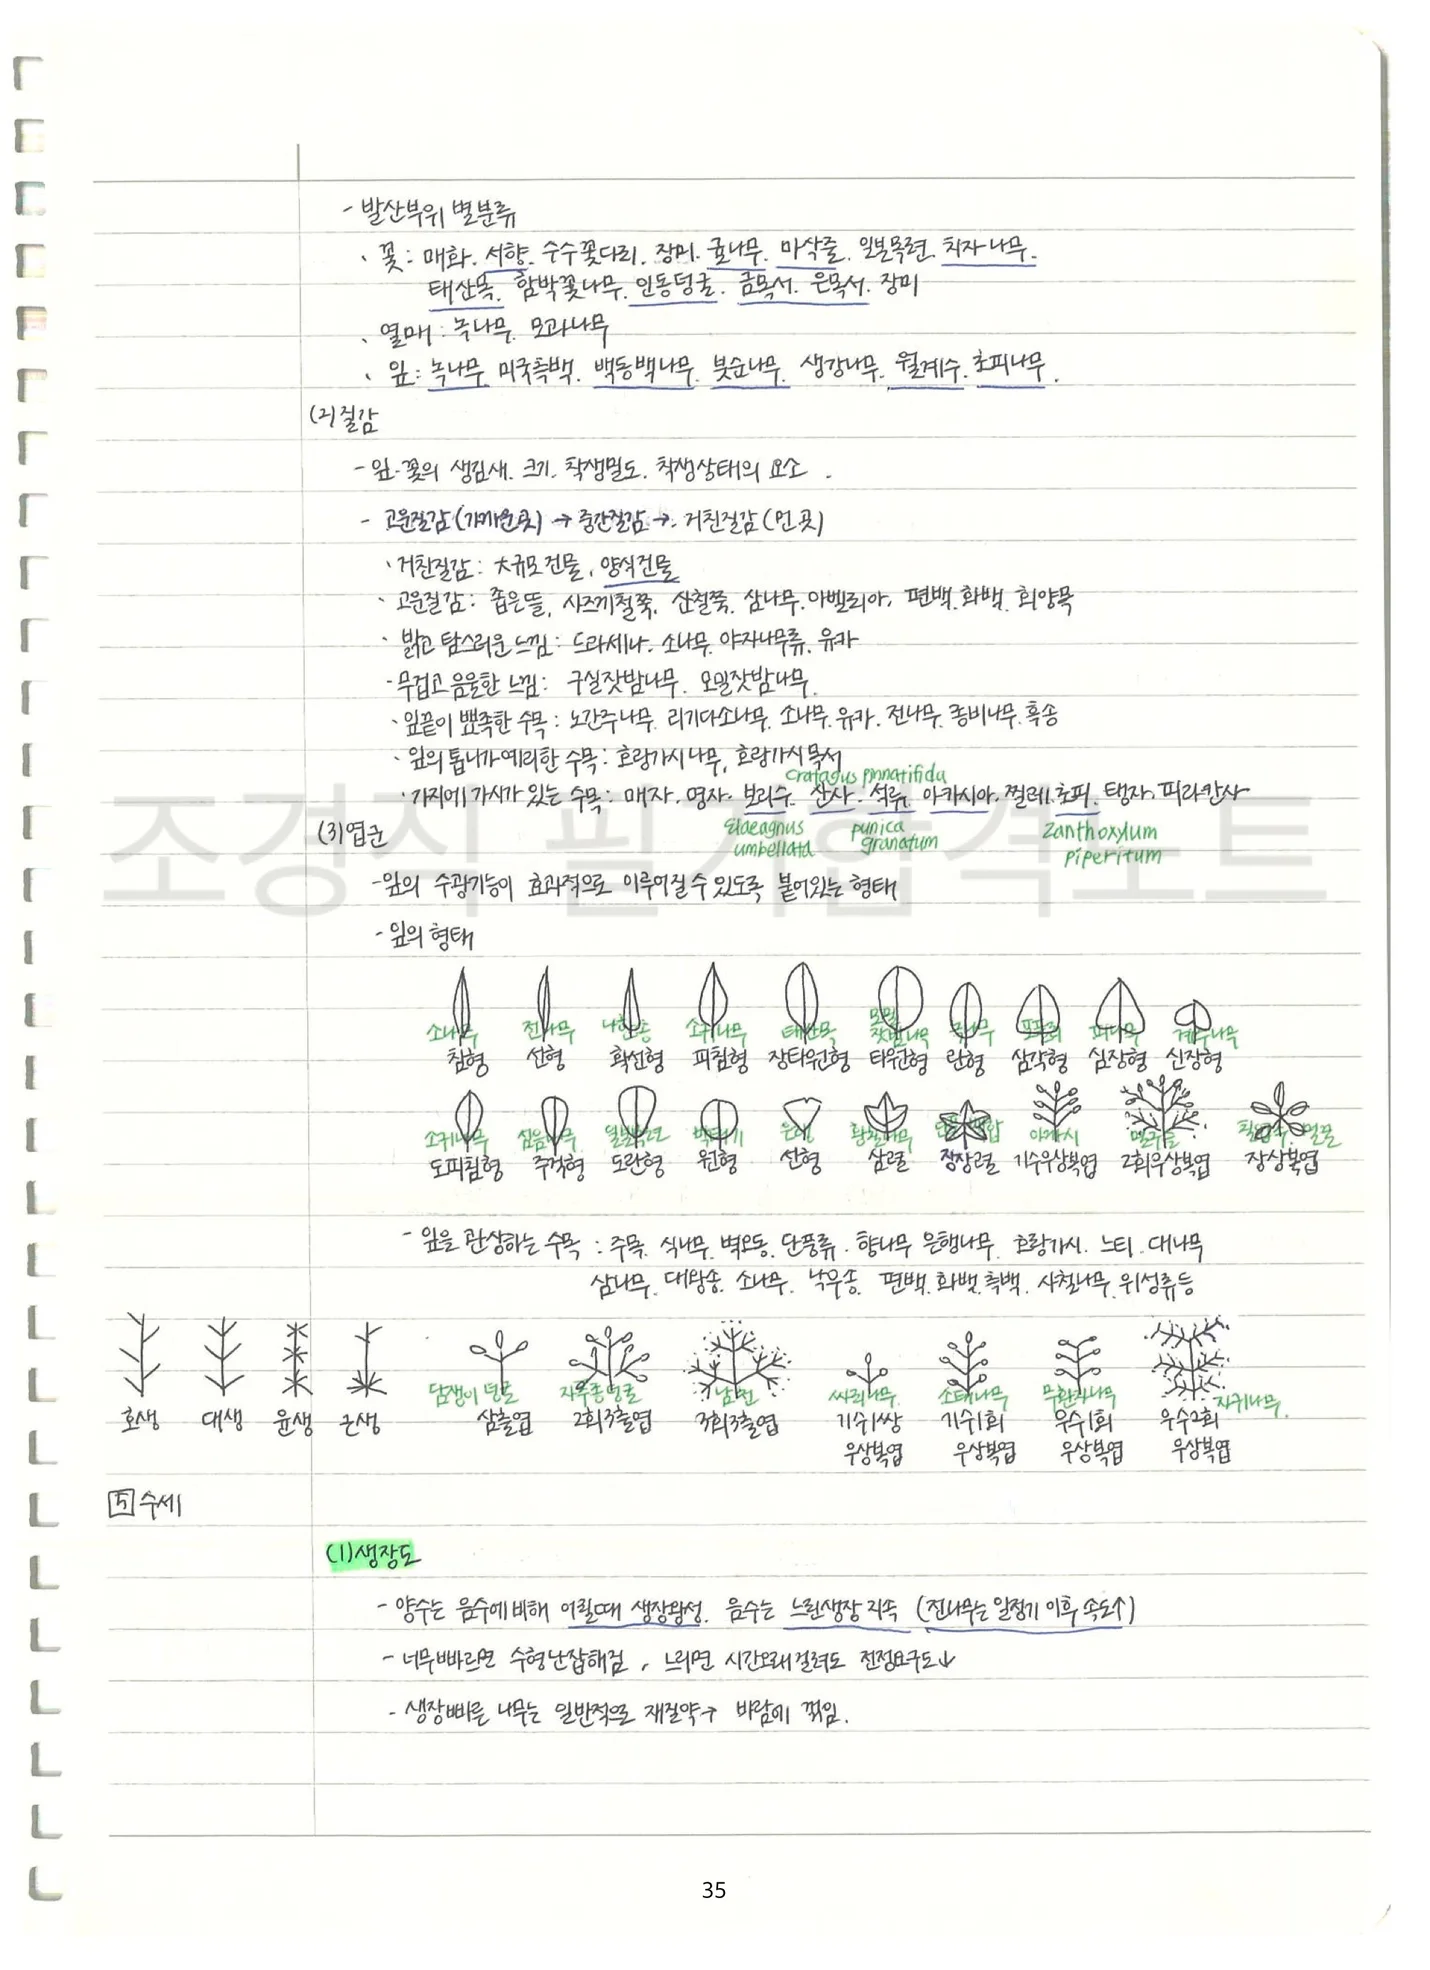 - 발산부위 별분류
· 꽃 : 매화. 서향. 수수꽃다리. 장미. 귤나무. 마삭줄. 일본목련. 치자나무.
태산목. 함박꽃나무. 인동덩굴. 금목서. 은목서. 장미
· 열매 : 녹나무. 모과나무
· 잎 : 녹나무. 미국측백. 백동백나무. 붓순나무. 생강나무. 월계수. 초피나무.
(2) 질감
- 잎·꽃의 생김새. 크기. 착생밀도. 착생상태의 요소.
- 고운질감(가까운곳) → 중간질감 → 거친질감(먼곳)
· 거친질감 : 大규모건물, 양식건물
· 고운질감 : 좁은뜰, 사즈끼철쭉, 산철쭉. 삼나무. 아벨리아, 편백. 화백. 회양목
· 밝고 탐스러운 느낌 : 드라세나. 소나무. 야자나무류. 유카
· 무겁고 음울한 느낌 : 구실잣밤나무. 모밀잣밤나무.
· 잎끝이 뾰족한 수목 : 노간주나무. 리기다소나무. 소나무. 유카. 전나무. 종비나무. 흑송
· 잎의 톱니가 예리한 수목 : 호랑가시나무, 호랑가시목서
cratagus pinnatifida
· 가지에 가시가 있는 수목 : 매자. 명자. 보리수. 산사. 석류. 아카시아. 찔레. 초피. 탱자. 피라칸사
Elaeagnus umbellata punica granatum zanthoxylum piperitum
조경직 필기합격노트
(3) 엽군
- 잎의 수광기능이 효과적으로 이루어질 수 있도록 붙어있는 형태
- 잎의 형태
소나무 전나무 나한송 소귀나무 태산목 모밀잣밤나무 포플러 피나무 계수나무
침형 선형 확선형 피침형 장타원형 타원형 란형 삼각형 심장형 신장형
소귀나무 일본목련 박태기 은행 황칠나무 아까시 멀구슬 멀꿀
도피침형 주걱형 도란형 원형 선형 삼렬 장상렬 기수우상복엽 2회우상복엽 장상복엽
- 잎을 관상하는 수목 : 주목. 식나무. 벽오동. 단풍류. 향나무. 은행나무. 호랑가시. 느티. 대나무
삼나무. 대왕송. 소나무. 낙우송. 편백. 화백. 측백. 사철나무. 위성류등
담쟁이덩굴 남천 싸리나무 소태나무 무환자나무 자귀나무.
호생 대생 윤생 근생 삼출엽 2회3출엽 3회3출엽 기수1쌍 기수1회 우수1회 우수2회
우상복엽 우상복엽 우상복엽 우상복엽
5 수세
(1) 생장도
- 양수는 음수에 비해 어릴때 생장왕성. 음수는 느린생장 지속 (전나무는 일정기 이후 속도↑)
- 너무빠르면 수형난잡해짐, 느리면 시간오래걸려도 전정요구도↓
- 생장빠른 나무는 일반적으로 재질약→ 바람에 꺾임.
35